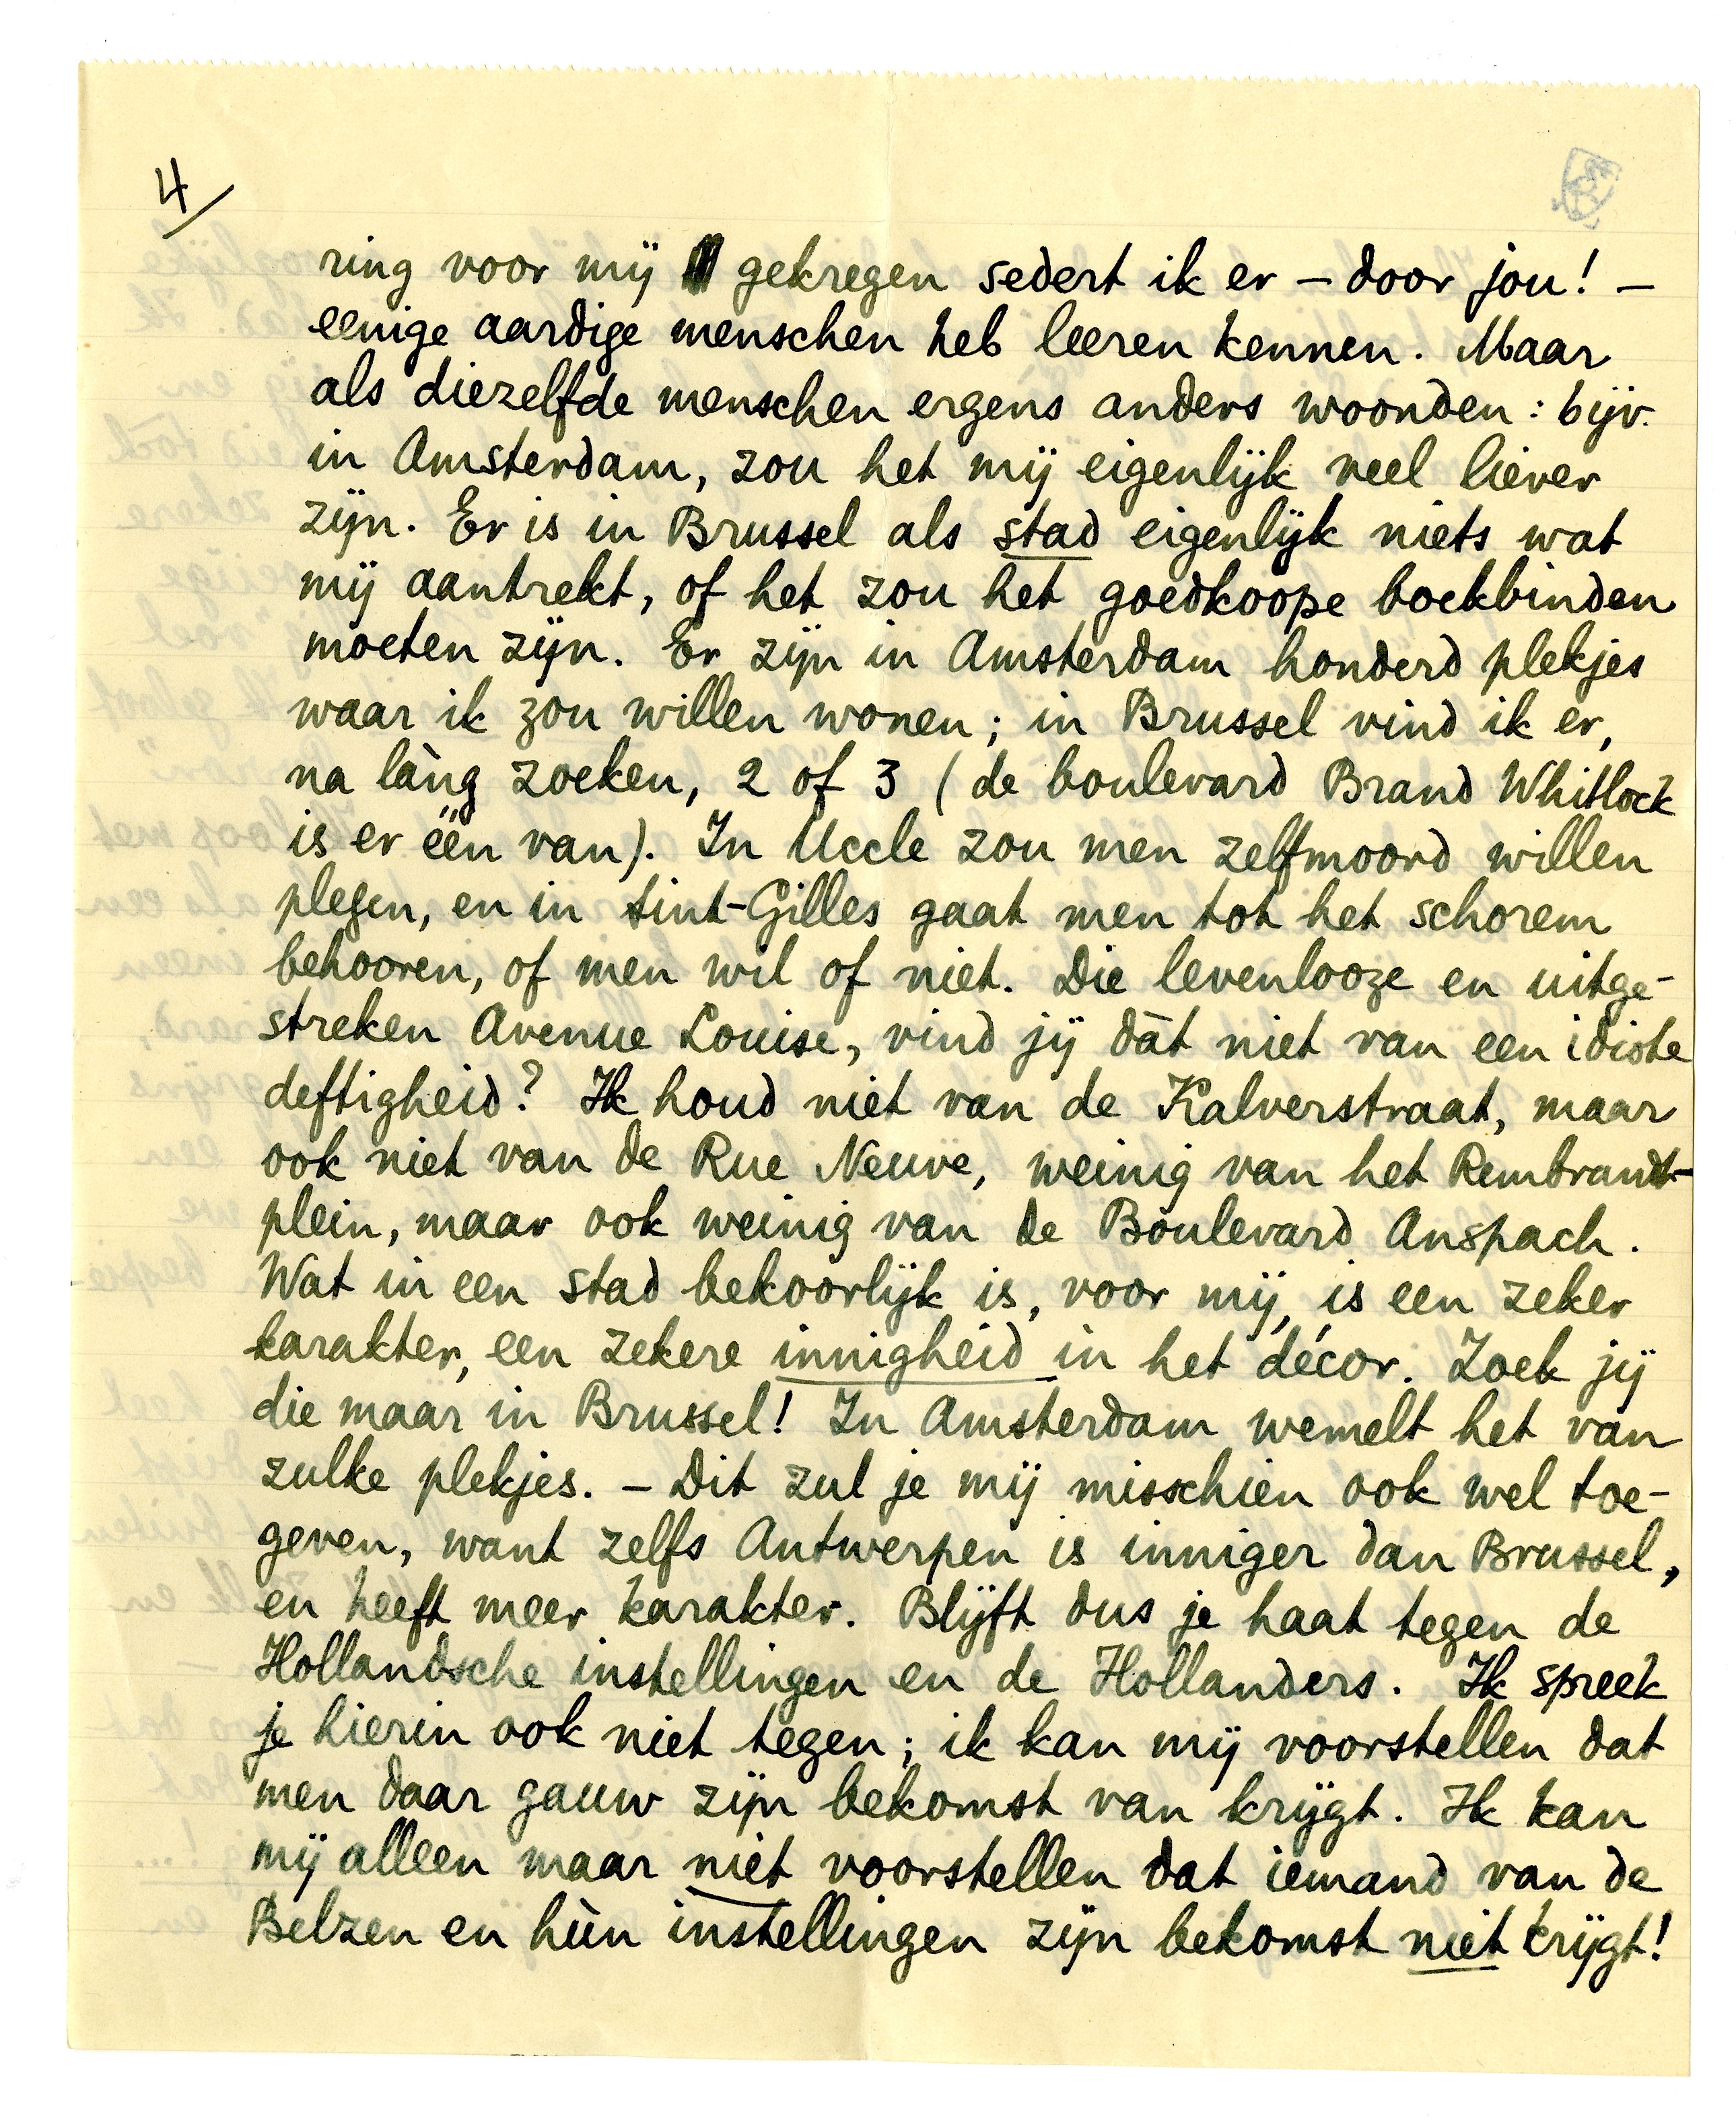 4/
ring voor mij gekregen sedert ik er – door jou! –
eenige aardige menschen heb leeren kennen. Maar
als diezelfde menschen ergens anders woonden: bijv.
in Amsterdam, zou het mij eigenlijk veel liever
zijn. Er is in Brussel als stad eigenlijk niets wat
mij aantrekt, of het zou het goedkoope boekbinden
moeten zijn. Er zijn in Amsterdam honderd plekjes
waar ik zou willen wonen; in Brussel vind ik er,
na làng zoeken, 2 of 3 (de boulevard Brand Whitlock
is er één van). In Uccle zou men zelfmoord willen
plegen, en in Sint-Gilles gaat men tot het schorem
behooren, of men wil of niet. Die levenlooze en uitge-
streken Avenue Louise, vind jij dàt niet van een idiote
deftigheid? Ik houd niet van de Kalverstraat, maar
ook niet van de Rue Neuve, weinig van het Rembrandt-
plein, maar ook weinig van de Boulevard Anspach.
Wat in een stad bekoorlijk is, voor mij, is een zeker
karakter, een zekere innigheid in het décor. Zoek jij
die maar in Brussel! In Amsterdam wemelt het van
zulke plekjes. – Dit zul je mij misschien ook wel toe-
geven, want zelfs Antwerpen is inniger dan Brussel,
en heeft meer karakter. Blijft dus je haat tegen de
Hollandsche instellingen en de Hollanders. Ik spreek
je hierin ook niet tegen; ik kan mij voorstellen dat
men daar gauw zijn bekomst van krijgt. Ik kan
mij alleen maar niet voorstellen dat iemand van de
Belzen en hùn instellingen zijn bekomst niet krijgt!